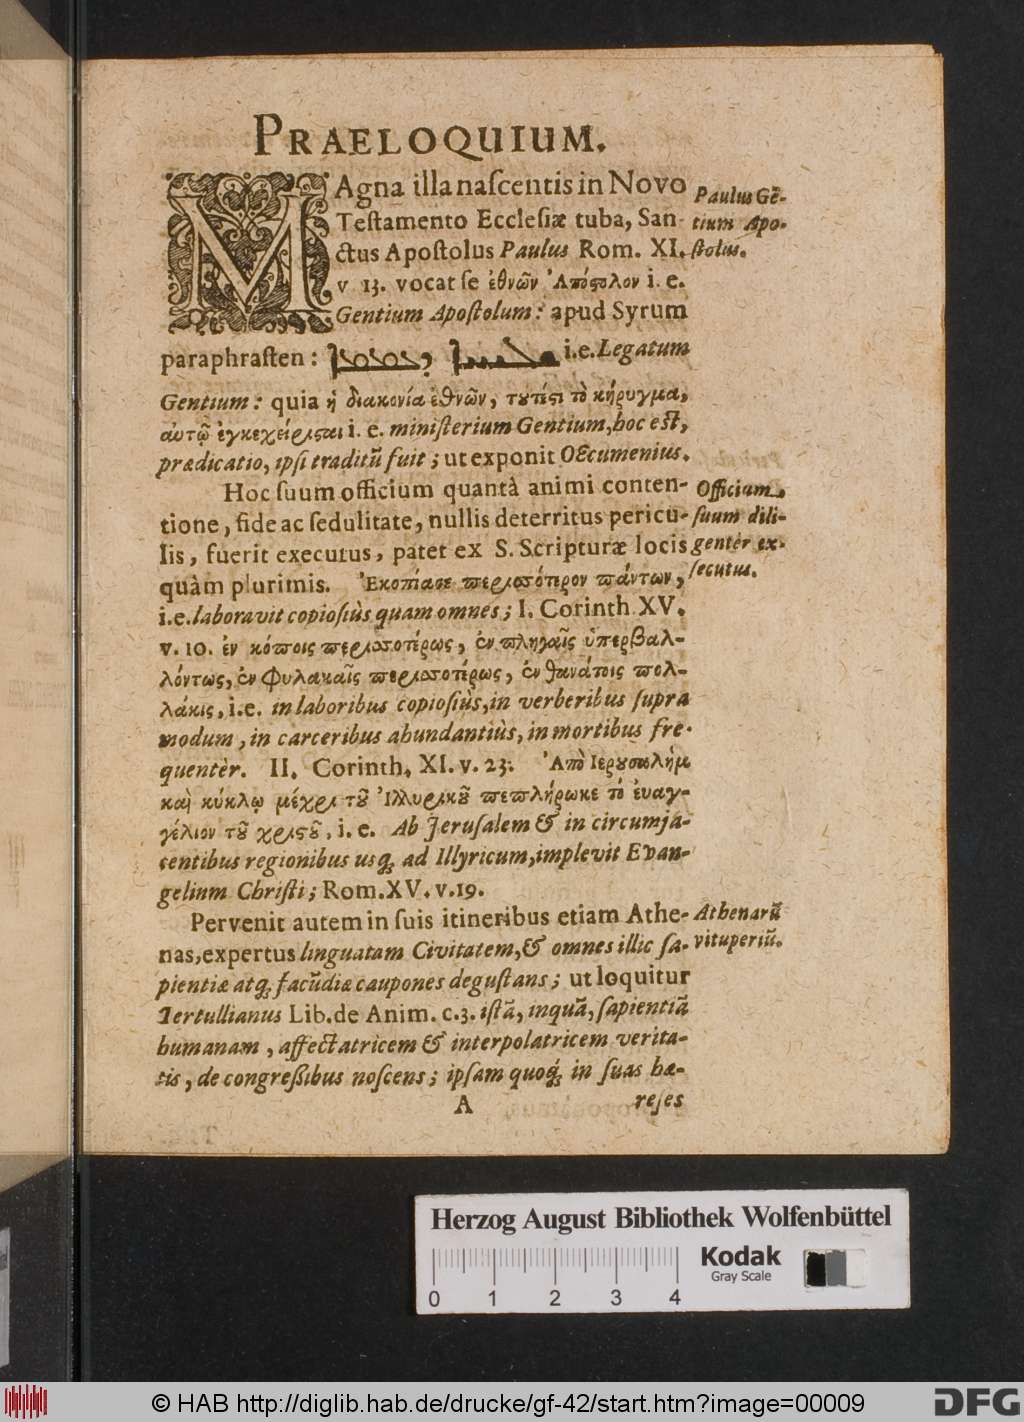 PRAELOQUIUM.
MAgna illa naſcentis in Novo
Teſtamento Eccleſiæ tuba, San-
ctus Apoſtolus Paulus Rom. XI.
v 13. vocat ſe ἐθνῶν Ἀπόϛολον i. e.
Gentium Apoſtolum: apud Syrum
paraphraſten: i.e. Legatum
Gentium: quia ἡ διακονία ἐθνῶν, τȣτίϛι τὸ κήρυγμα,
αυτῷ ἐγκεχείριϛαι i. e. miniſterium Gentium, hoc eſt,
prædicatio, ipſi traditũ fuit; ut exponit OEcumenius.
Paulus Gẽ-
tium Apo-
ſtolus.
Hoc ſuum officium quantà animi conten-
tione, fide ac ſedulitate, nullis deterritus pericu-
lis, fuerit executus, patet ex S. Scripturæ locis
quàm plurimis. Ἐκοπίασε περισσότερον πάντων,
i.e. laboravit copioſiùs quam omnes; I. Corinth XV.
v. 10. ἐν κόποις περισσοτέρως, ἐν πληγαῖς ὑπερβαλ-
λόντως, ἐν Φυλακαῖς περισσοτέρως, ἐν θανάτοις πολ-
λάκις, i.e. in laboribus copioſiùs, in verberibus ſupra
modum, in carceribus abundantiùs, in mortibus fre-
quentèr. II. Corinth. XI. v. 23. Ἀπὸ Ιερȣσαλὴμ
καὶ κύκλῳ μέχρι τȣ͂ Ἰλλυρικȣ͂ πεπλήρωκε τό ἐυαγ-
γέλιον τȣ͂ χριϛȣ͂, i. e. Ab Jeruſalem & in circumja-
centibus regionibus usq; ad Illyricum, implevit Evan-
gelium Chriſti; Rom. XV. v. 19.
Officium
ſuum dili-
gentèr ex-
ſecutus.
Pervenit autem in ſuis itineribus etiam Athe-
nas, expertus linguatam Civitatem, & omnes illic ſa-
pientiæ atq; facũdiæ caupones deguſtans; ut loquitur
Tertullianus Lib. de Anim. c. 3. iſtã, inquã, ſapientiã
humanam, affectatricem & interpolatricem verita-
tis, de congreßibus noſcens; ipſam quoq; in ſuas hæ-
Athenarũ
vituperiũ.
A reſes
Herzog August Bibliothek Wolfenbüttel
Kodak
Gray Scale
0 1 2 3 4
© HAB http://diglib.hab.de/drucke/gf-42/start.htm?image=00009
DFG